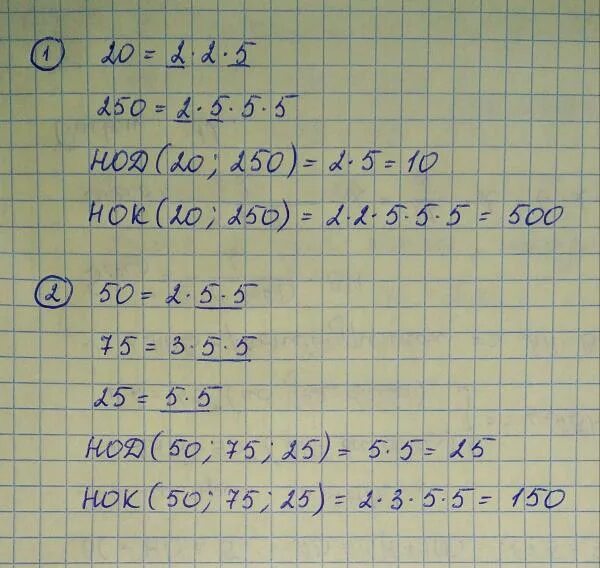 1 20 = 2 · 2 · 5
250 = 2 · 5 · 5 · 5
НОД (20; 250) = 2 · 5 = 10
НОК (20; 250) = 2 · 2 · 5 · 5 · 5 = 500
2 50 = 2 · 5 · 5
75 = 3 · 5 · 5
25 = 5 · 5
НОД (50; 75; 25) = 5 · 5 = 25
НОК (50; 75; 25) = 2 · 3 · 5 · 5 = 150